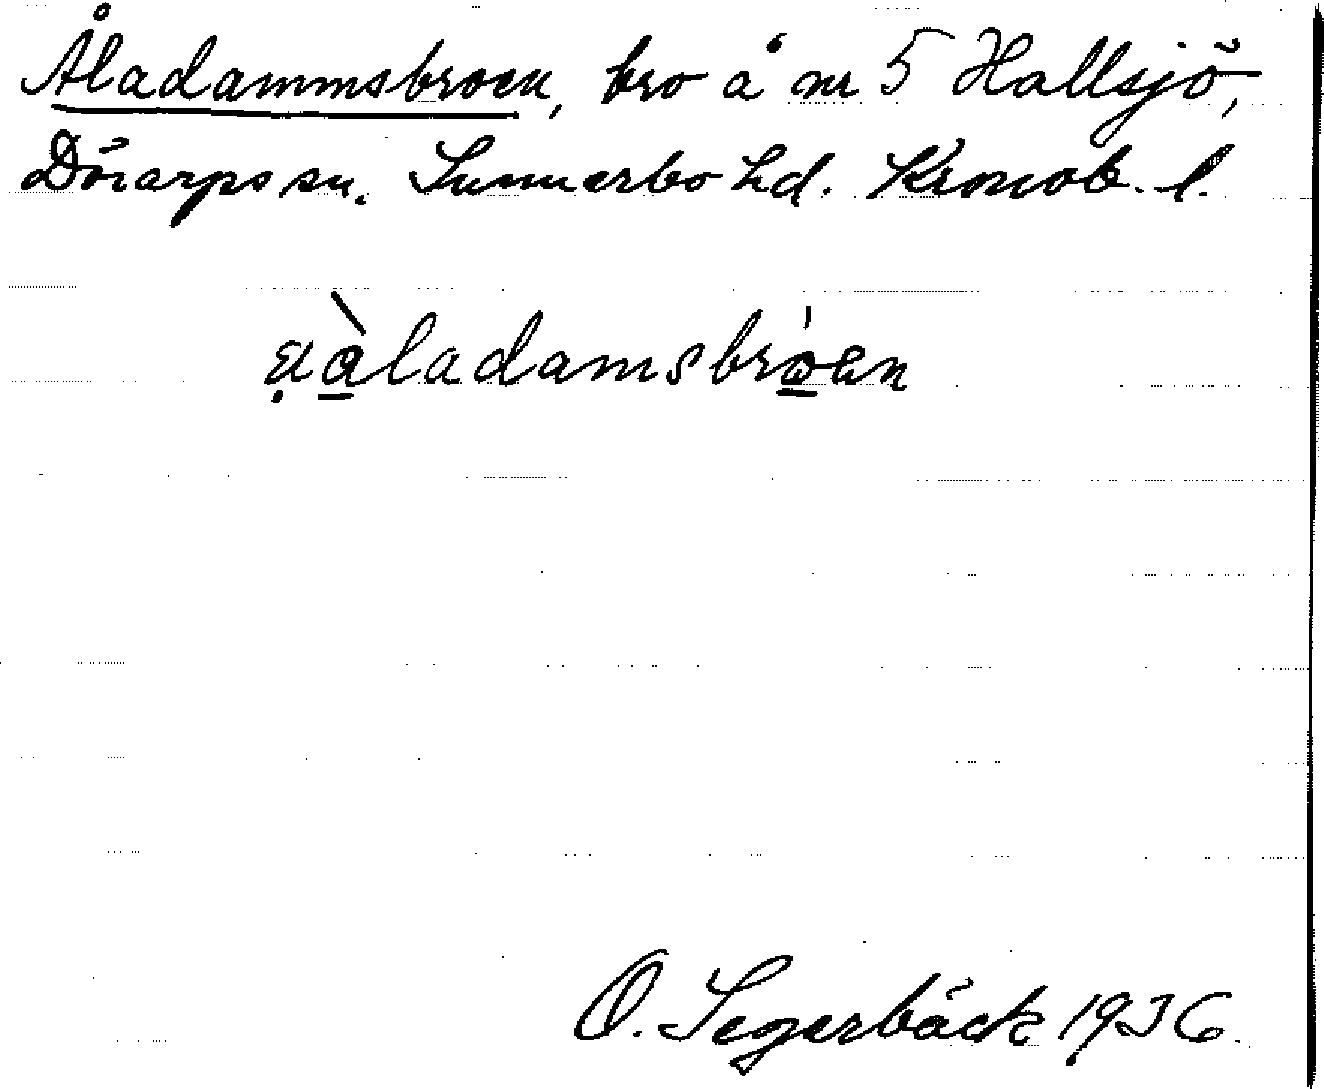 Åladammsbroen, bro å nr 5 Hallsjö,
Dörarps sn. Sunnerbo hd. Kronob. l.
aladamsbroen
O. Segerbäck 1936.